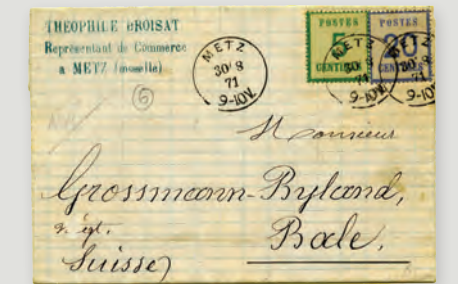 THEOPHILE BROISAT
Représentant de Commerce
a METZ (moselle)
6
METZ
30 8
71
9-10V.
POSTES
5
CENTIMES
POSTES
20
CENTIMES
METZ
30 8
71
9-10V.
METZ
30 8
71
9-10V.
Monsieur
Grossmann-Byland,
Bale.
Suisse